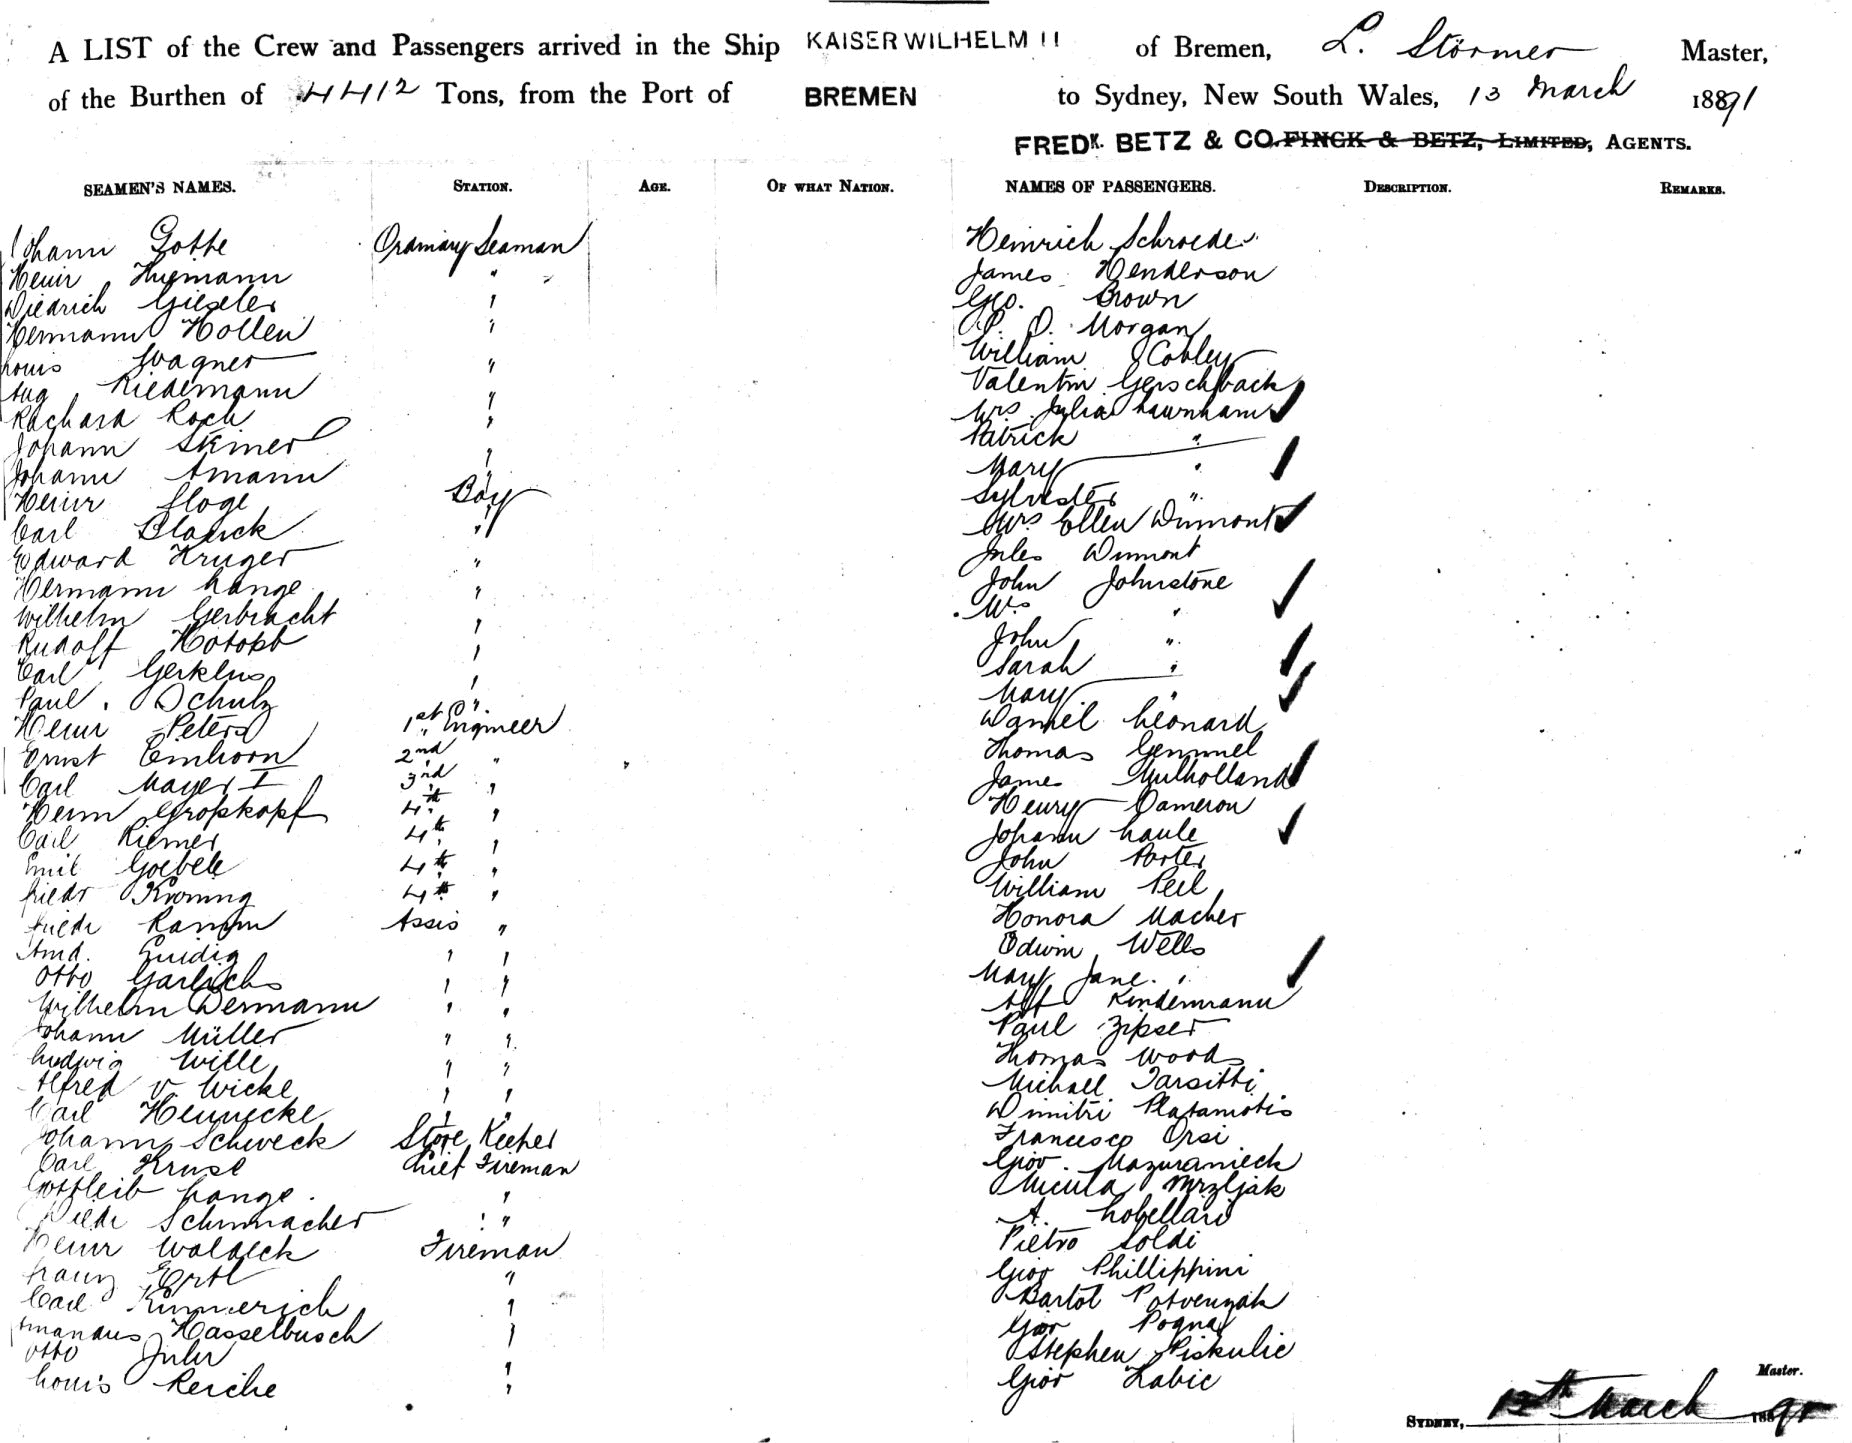 A LIST of the Crew and Passengers arrived in the Ship KAISER WILHELM II of Bremen, L. Störmer Master,
of the Burthen of 4412 Tons, from the Port of BREMEN to Sydney, New South Wales, 13 March 1891
FREDK. BETZ & CO. FINCK & BETZ, LIMITED, AGENTS.
SEAMEN'S NAMES. STATION. AGE. OF WHAT NATION. NAMES OF PASSENGERS. DESCRIPTION. REMARKS.
Johann Gothe Ordinary Seaman Heinrich Schroeder
Heinr " James Henderson
Diedrich Gieseler " Geo. Brown
Hermann Hollen " P. D. Morgan
Louis Wagner " William Cobley
Aug Riedemann " Valentin Gerschback
Richard Koch " Mrs Julia Lawnham
Johann Patrick "
Johann Amann " Mary "
Heinr Boy Sylvester "
Carl Blanck " Mrs Ellen Dumont
Edward Kruger " Jules Dumont
Hermann Lange " John Johnstone
Wilhelm Gerbracht " Mrs "
Rudolf Hotopp " John "
Carl " Sarah "
Paul Schulz " Mary "
Heinr Peters 1st Engineer Daniel Leonard
Ernst Einhorn 2nd " Thomas Gemmel
Carl Mayer I 3rd " James Mulholland
Heinr Gropkopf 4th " Henry Cameron
Carl Riemer 4th " Johann Laule
Emil Goebele 4th " John Porter
Friedr Kröning 4th " William Peel
Friedr Ramm Assis " Honora Macher
Amd. " " Edwin Wells
Otto Garlichs " " Mary Jane "
Wilhelm Dermann " " Alf Kindermann
Johann Müller " " Paul Zipser
Ludwig Wille " " Thomas Woods
Alfred v Wicke " " Michael Tarsitti
Carl Hennecke " " Dimitri Platamotis
Johann Schweck Store Keeper Francesco Orsi
Carl Kruse Chief Fireman Giov. Mazuranieck
Gottleib Lange " Micula Mrzljak
Friedr Schumacher " " A. Lobellari
Heinr Waldeck Fireman Pietro Soldi
Franz Ertl " Giov Phillippini
Carl Kimmerich " Bartol Potvenzak
Amandus Hasselbusch " Giov Pogna
Otto Juhr " Stephen Piskulic
Louis Reiche " Giov Zabic
Master.
SYDNEY, 13th March 1891